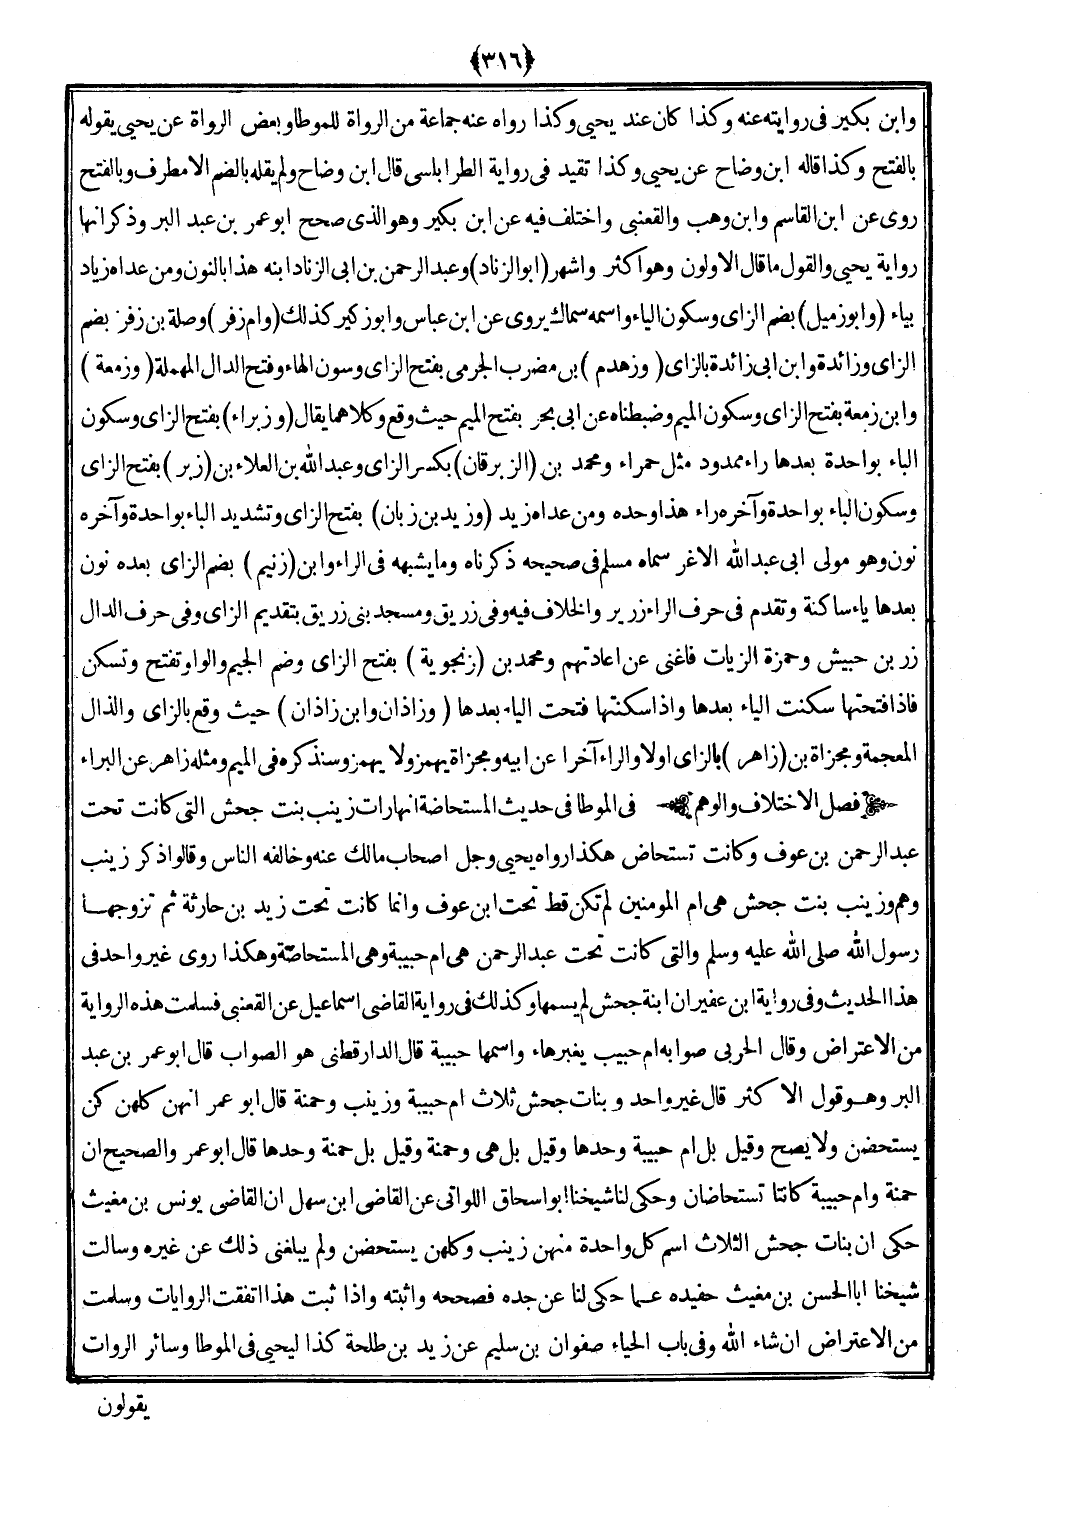 ﴿٣١٦﴾
وابن بكير فى روايته عنه وكذا كان عند يحيى وكذا رواه عنه جماعة من الرواة للموطا وبعض الرواة عن يحيى يقوله
بالفتح وكذا قاله ابن وضاح عن يحيى وكذا تقيد فى رواية الطرابلسى قال ابن وضاح ولم يقله بالضم الا مطرف وبالفتح
روى عن ابن القاسم وابن وهب والقعنبى واختلف فيه عن ابن بكير وهو الذى صحح ابو عمر بن عبد البر وذكر انها
رواية يحيى والقول ما قال الاولون وهو اكثر واشهر (ابو الزناد) وعبد الرحمن بن ابى الزناد ابنه هذا بالنون ومن عداه زياد
بياء (وابو زميل) بضم الزاى وسكون الياء واسمه سماك يروى عن ابن عباس وابو زكير كذلك (وام زفر) وصلة بن زفر بضم
الزاى وزائدة وابن ابى زائدة بالزاى (وزهدم) بن مضرب الجرمى بفتح الزاى وسون الهاء وفتح الدال المهملة (وزمعة)
وابن زمعة بفتح الزاى وسكون الميم وضبطناه عن ابى بحر بفتح الميم حيث وقع وكلاهما يقال (وزبراء) بفتح الزاى وسكون
الباء بواحدة بعدها راء ممدود مثل حمراء ومحمد بن (الزبرقان) بكسر الزاى وعبد الله بن العلاء بن (زبر) بفتح الزاى
وسكون الباء بواحدة وآخره راء هذا وحده ومن عداه زيد (وزيد بن زبان) بفتح الزاى وتشديد الباء بواحدة وآخره
نون وهو مولى ابى عبد الله الاغر سماه مسلم فى صحيحه ذكرناه وما يشبهه فى الراء وابن (زنيم) بضم الزاى بعده نون
بعدها ياء ساكنة وتقدم فى حرف الراء زرير والخلاف فيه وفى زريق ومسجد بنى زريق بتقديم الزاى وفى حرف الدال
زر بن حبيش وحمزة الزيات فاغنى عن اعادتهم ومحمد بن (زنجوية) بفتح الزاى وضم الجيم والواو تفتح وتسكن
فاذا فتحتها سكنت الياء بعدها واذا سكنتها فتحت الياء بعدها (وزاذان وابن زاذان) حيث وقع بالزاى والذال
المعجمة ومجزاة بن (زاهر) بالزاى اولا والراء آخرا عن ابيه ومجزاة يهمز ولا يهمز وسنذكره فى الميم ومثله زاهر عن البراء
﴿فصل الاختلاف والوهم﴾ فى الموطا فى حديث المستحاضة انها رات زينب بنت جحش التى كانت تحت
عبد الرحمن بن عوف وكانت تستحاض هكذا رواه يحيى وجل اصحاب مالك عنه وخالفه الناس وقالوا ذكر زينب
وهم وزينب بنت جحش هى ام المومنين لم تكن قط تحت ابن عوف وانما كانت تحت زيد بن حارثة ثم تزوجها
رسول الله صلى الله عليه وسلم والتى كانت تحت عبد الرحمن هى ام حبيبة وهى المستحاضة وهكذا روى غير واحد فى
هذا الحديث وفى رواية ابن عفير ان ابنة جحش لم يسمها وكذلك فى رواية القاضى اسماعيل عن القعنبى فسلمت هذه الرواية
من الاعتراض وقال الحربى صوابه ام حبيب بغير هاء واسمها حبيبة قال الدارقطنى هو الصواب قال ابو عمر بن عبد
البر وهو قول الاكثر قال غير واحد وبنات جحش ثلاث ام حبيبة وزينب وحمنة قال ابو عمر انهن كلهن كن
يستحضن ولا يصح وقيل بل ام حبيبة وحدها وقيل بل هى وحمنة وقيل بل حمنة وحدها قال ابو عمر والصحيح ان
حمنة وام حبيبة كانتا تستحاضان وحكى لنا شيخنا ابو اسحاق اللواتى عن القاضى ابن سهل ان القاضى يونس بن مغيث
حكى ان بنات جحش الثلاث اسم كل واحدة منهن زينب وكلهن يستحضن ولم يبلغنى ذلك عن غيره وسالت
شيخنا ابا الحسن بن مغيث حفيده عما حكى لنا عن جده فصححه واثبته واذا ثبت هذا اتفقت الروايات وسلمت
من الاعتراض ان شاء الله وفى باب الحياء صفوان بن سليم عن زيد بن طلحة كذا ليحيى فى الموطا وسائر الروات
يقولون